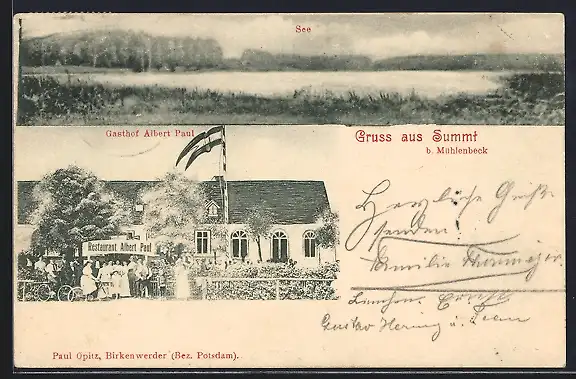 See
Gasthof Albert Paul
Gruss aus Summt
b. Mühlenbeck
Restaurant Albert Paul
Herzliche Grüße
senden
Familie
Gustav Hering u. Frau
Paul Opitz, Birkenwerder (Bez. Potsdam).